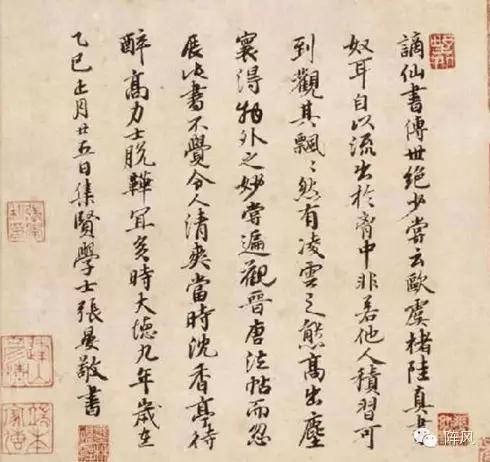 謫仙書傳世絶少嘗云歐虞褚陸真書
奴耳自以流出於胷中非若他人積習可
到觀其飄〻然有凌雲之態髙出塵
寰得物外之妙嘗遍觀晉唐法帖而忽
展此書不覺令人清爽當時沈香亭待
醉髙力士脱鞾宜矣時大德九年歲在
乙巳正月廿五日集賢學士張晏敬書
阵风